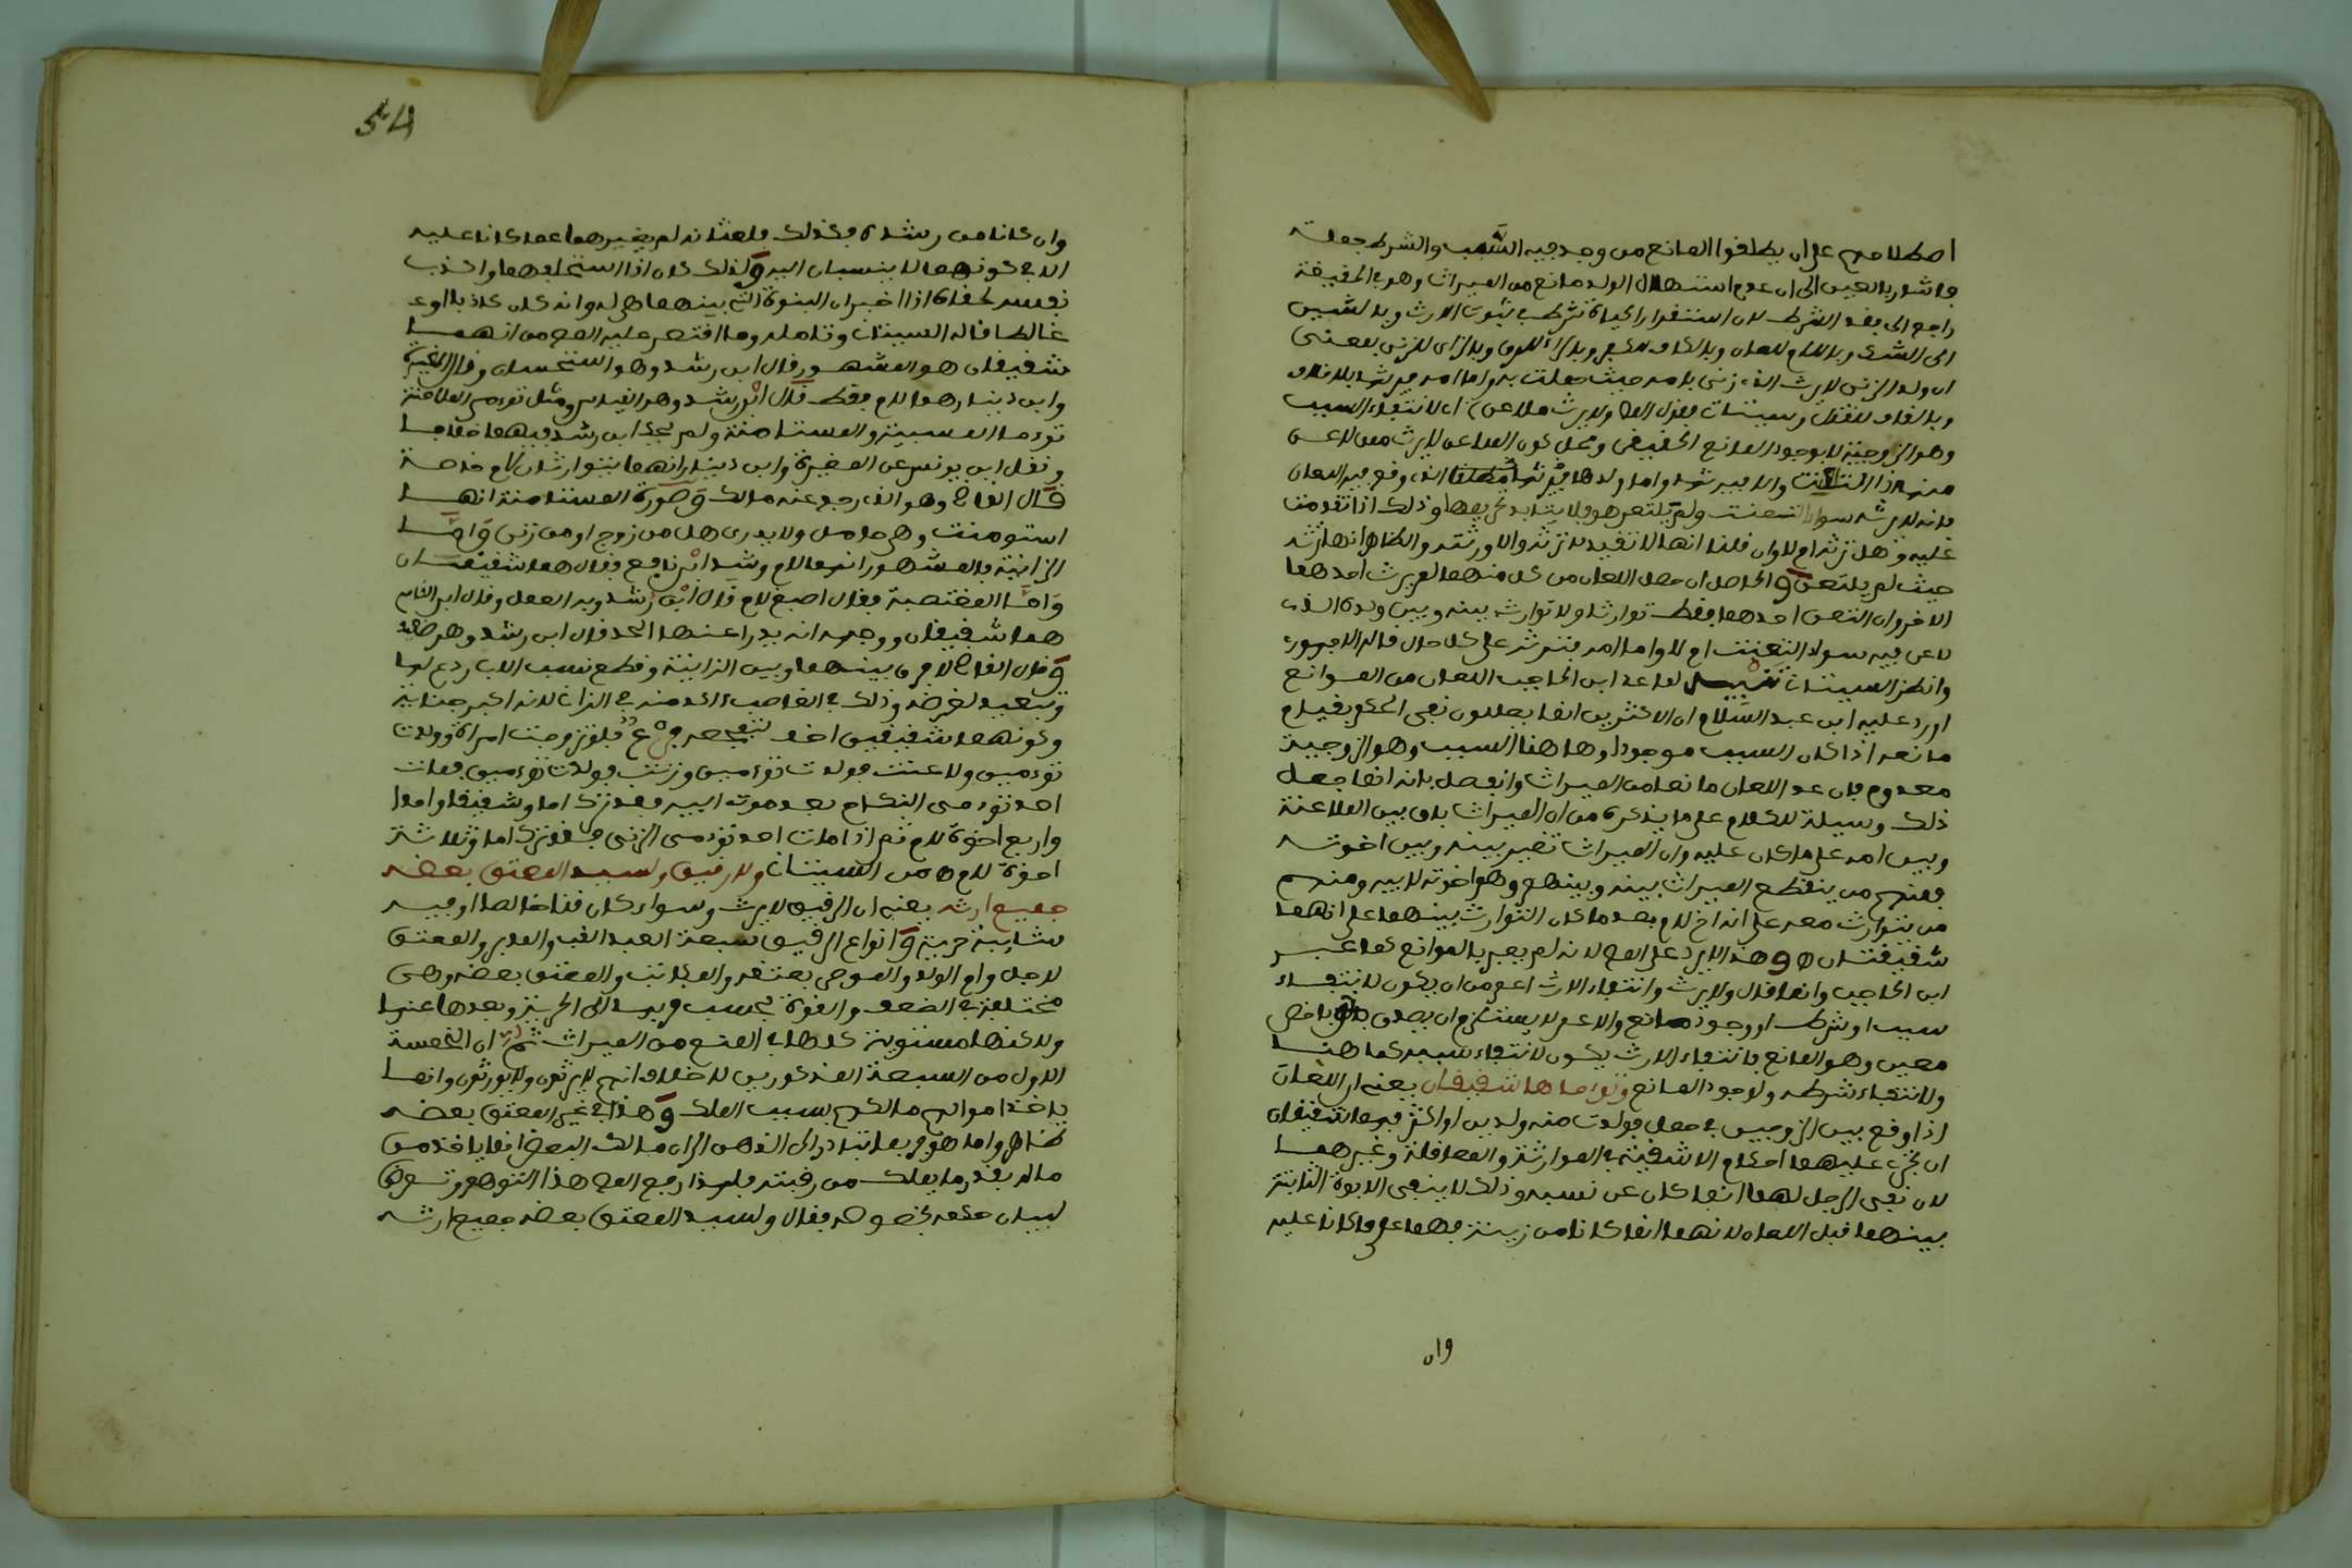 اصطلاحهم على ان يطلقوا المانع من وجد فيه السبب والشرط جعلت
فاشار بالعين الى ان عدم استهلال الولد مانع من الميراث وهو في الحقيقة
راجع الى فقد الشرط لان استقرار الحياة شرط في ثبوت الارث وبالشين
الى الشك وباللام للعان وبالكاف للكفر وبالراء للرق وبالزاي للزنى بمعنى
ان ولد الزنى لا يرث الذي زنى بامه حيث حملت به واما امه فيرثها بلا خلاف
وبالقاف للقتل وسيتات فقول المص ولا يرث ملاعن اي لانتفاء السبب
وهو الزوجية لا بوجود المانع الحقيقي ومحل كون الملاعن لا يرث ممن لاعن
منها اذا التعنت والا فيرثها واما ولدها الذي وقع فيه اللعان
فانه لا يرثه سواء التعنت ولم تلتعن هو فلا يتابد تحريمها وذلك اذا تقدمت
عليه وهل ترثه ام لا وان قلنا انها لا تفيد لا ترثه والا ورثته والظاهر انها ترثه
حيث لم يلتعن والحاصل ان حصل اللعان من كل منهما لم يرث احدهما
الاخر وان التعن احدهما فقط توارثا ولا توارث بينه وبين ولده الذي
لاعن فيه سواء التعنت ام لا واما امه فترثه على كل حال قاله الاجهوري
وانظر السيتات تنبيه لما عد ابن الحاجب اللعان من الموانع
اورد عليه ابن عبد السلام ان الاكثرين انما يعللون نفي الحكم بقيام
مانعه اذا كان السبب موجودا وها هنا السبب وهو الزوجية
معدوم فان عد اللعان مانعا من الميراث وانفصل بانه انما جعل
ذلك وسيلة للكلام على ما يذكره من ان الميراث باق بين الملاعنة
وبين امه على ما كان عليه وان الميراث تغير بينه وبين اخوته
فمنهم من ينقطع الميراث بينه وبينهم وهم اخوته لابيه ومنهم
من يتوارث معه على انه اخ لام بعد ما كان التوارث بينهما على انهما
شقيقان ه وهذا لا يرد على المص لانه لم يعبر بالموانع كما عبر
ابن الحاجب وانما قال ولا يرث وانتفاء الارث اعم من ان يكون لانتفاء
سبب او شرط او وجود مانع والاعم لا يستلزم ان يصدق باخص
معين وهو المانع فانتفاء الارث يكون لانتفاء سببه كما هنا
ولانتفاء شرطه ولوجود المانع وتوءماها شقيقان يعني ان اللعان
اذا وقع بين الزوجين في حمل فولدت منه ولدين او اكثر فهما شقيقان
اي تجري عليهما احكام الاشقية في الموارثة والمعاقلة وغيرهما
لان نفي الرجل لهما انما كان عن نفسه وذلك لا ينفي الابوة الثابتة
بينهما قبل اللعان لانهما انما كانا من زينة فهما على ما كانا عليه
وان
54
وان كانا من رشدة فكذلك فلعانه لم يغيرهما عما كانا عليه
الا في كونهما لا ينسبان اليه وكذلك كان اذا استلحقهما واكذب
نفسه لحقاه اذا اخبر ان البنوة التي بينهما هي له وانه كان كاذبا او
غالطا قاله السيتات وتامله وما اقتصر عليه المص من انهما
شقيقان هو المشهور قال ابن رشد وهو استحسان وقال المغيرة
وابن دينار هما لام فقط قال ابن رشد وهو القياس ومثل توءمي الملاعنة
توءما المسبية والمستامنة ولم يحك ابن رشد فيهما خلافا
ونقل ابن يونس عن المغيرة وابن دينار انهما يتوارثان لام خاصة
قال الفاس وهو الذي رجع عنه مالك وصورة المستامنة انها
استومنت وهي حامل ولا يدري هل من زوج او من زنى واما
الزانية فالمشهور انهما لام وشذ ابن نافع فقال هما شقيقان
واما المغتصبة فقال اصبغ لام قال ابن رشد وبه العمل وقال ابن القاسم
هما شقيقان ووجهه انه يدرا عنها الحد قال ابن رشد وهو ضعيف
وقال الفاس لا فرق بينهما وبين الزانية وقطع نسب الاب ردع لها
وتبعيد لغرضه وذلك في الغاصب اكد منه في الزان لانه اكبر جناية
وكونهما شقيقين اخذ فلو تزوجت امراة وولدت
توءمين ولاعنت فولدت توءمين وزنت فولدت توءمين فمات
احد توءمى النكاح بعد موت ابيه فقد ترك اما وشقيقا واحدا
واربع اخوة لام ثم اذا مات احد توءمى الزنى فقد ترك اما وثلاثة
اخوة لام ه من السيتات ولا رقيق ولسيد المعتق بعضه
جميع ارثه يعني ان الرقيق لا يرث وسواء كان قنا خالصا او فيه
شايبة حرية وانواع الرقيق سبعة العبد القن والمدبر والمعتق
لاجل وام الولد والموصى بعتقه والمكاتب والمعتق بعضه وهي
مختلفة في الضعف والقوة بحسب قربها الى الحرية وبعدها عنها
ولاكنها مستوية كلها في المنع من الميراث ثم ان الخمسة
الاول من السبعة المذكورين لا خلاف انهم لا يرثون ولا يورثون وانما
ياخذ اموالهم مالكهم بسبب الملك وهذا في غير المعتق بعضه
ظاهر واما هو فربما يتبادر الى الذهن الى ان مالك البعض انما ياخذ من
ماله بقدر ما يملك من رقبته فلهذا رفع المص هذا التوهم وتعرض
لبيان حكمه بخصوصه فقال ولسيد المعتق بعضه جميع ارثه